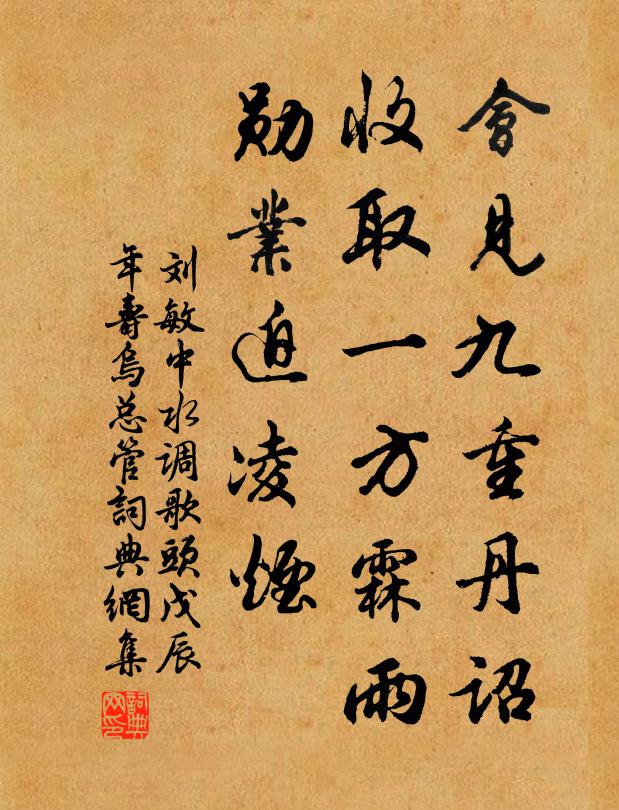 會見九重丹詔
收取一方霖雨
勛業迫凌煙
刘敏中水调歌頭戊辰
年壽烏总管詞典網集
詞典
网印